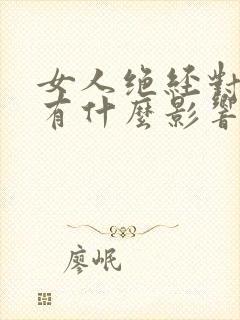 女人绝经對
有什麼影響
廖岷